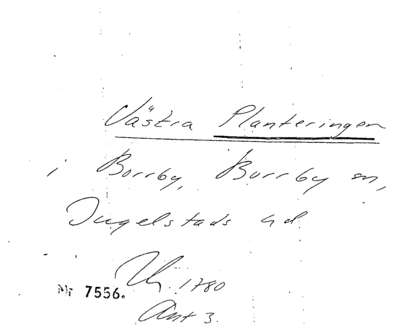 Västra Planteringen
i Borrby, Borrby sn,
Ingelstads hd
Uh. 1780
Nr 7556.
Ant 3.